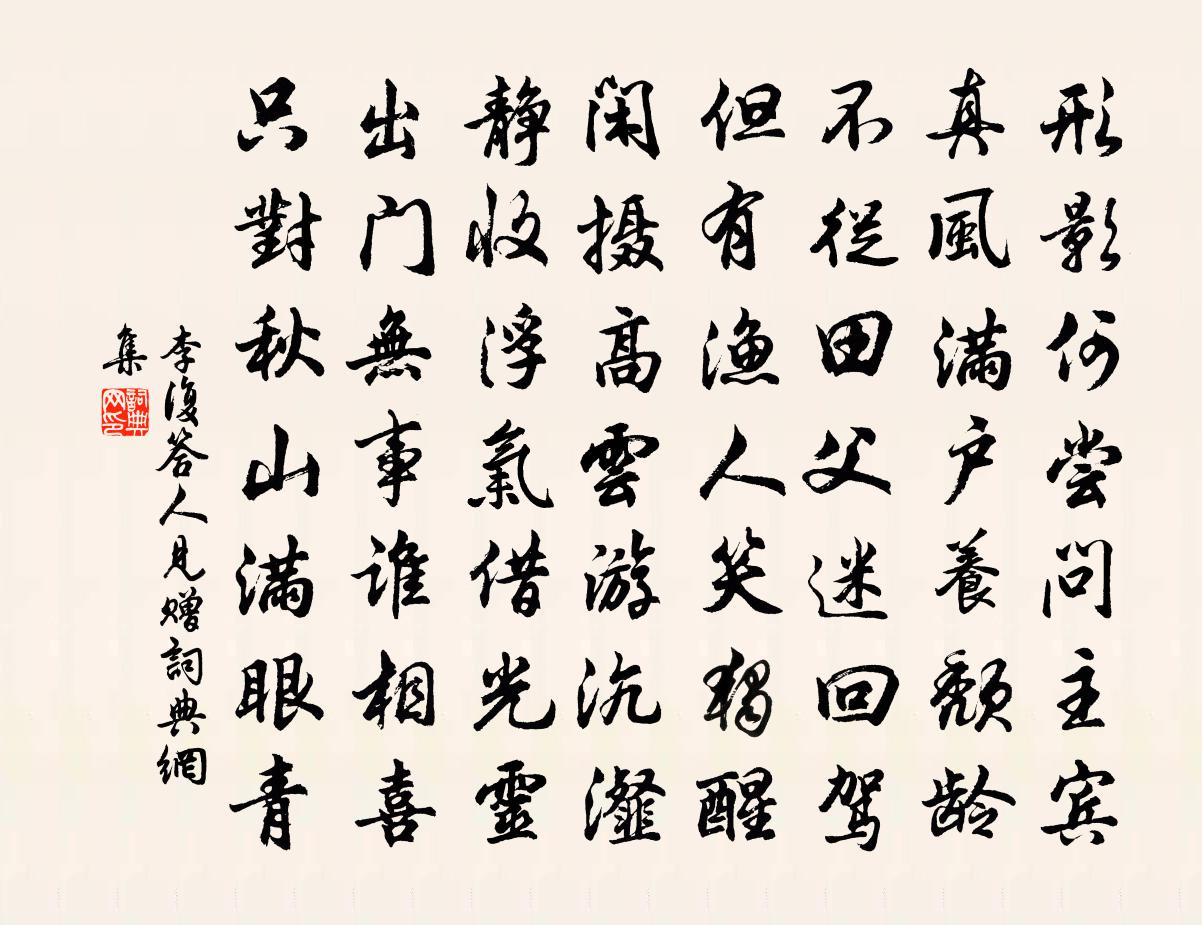 形影何尝問主賓
真風满户養颓龄
不従田父迷回驾
但有渔人笑獨醒
闲摄高雲游沆瀣
静收浮氣借光靈
出门無事谁相喜
只對秋山满眼青
李復答人見赠詞典網
集
詞典
网印